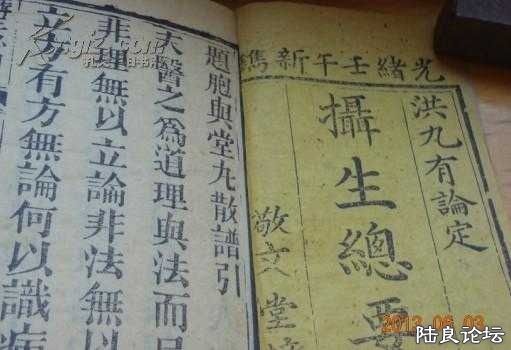 光緒壬午新雋
洪九有論定
攝生總要
敬文堂
題胞與堂丸散譜引
夫醫之爲道理與法而已
非理無以立論非法無以
立方有方無論何以識病
2013 06 03
陆良论坛